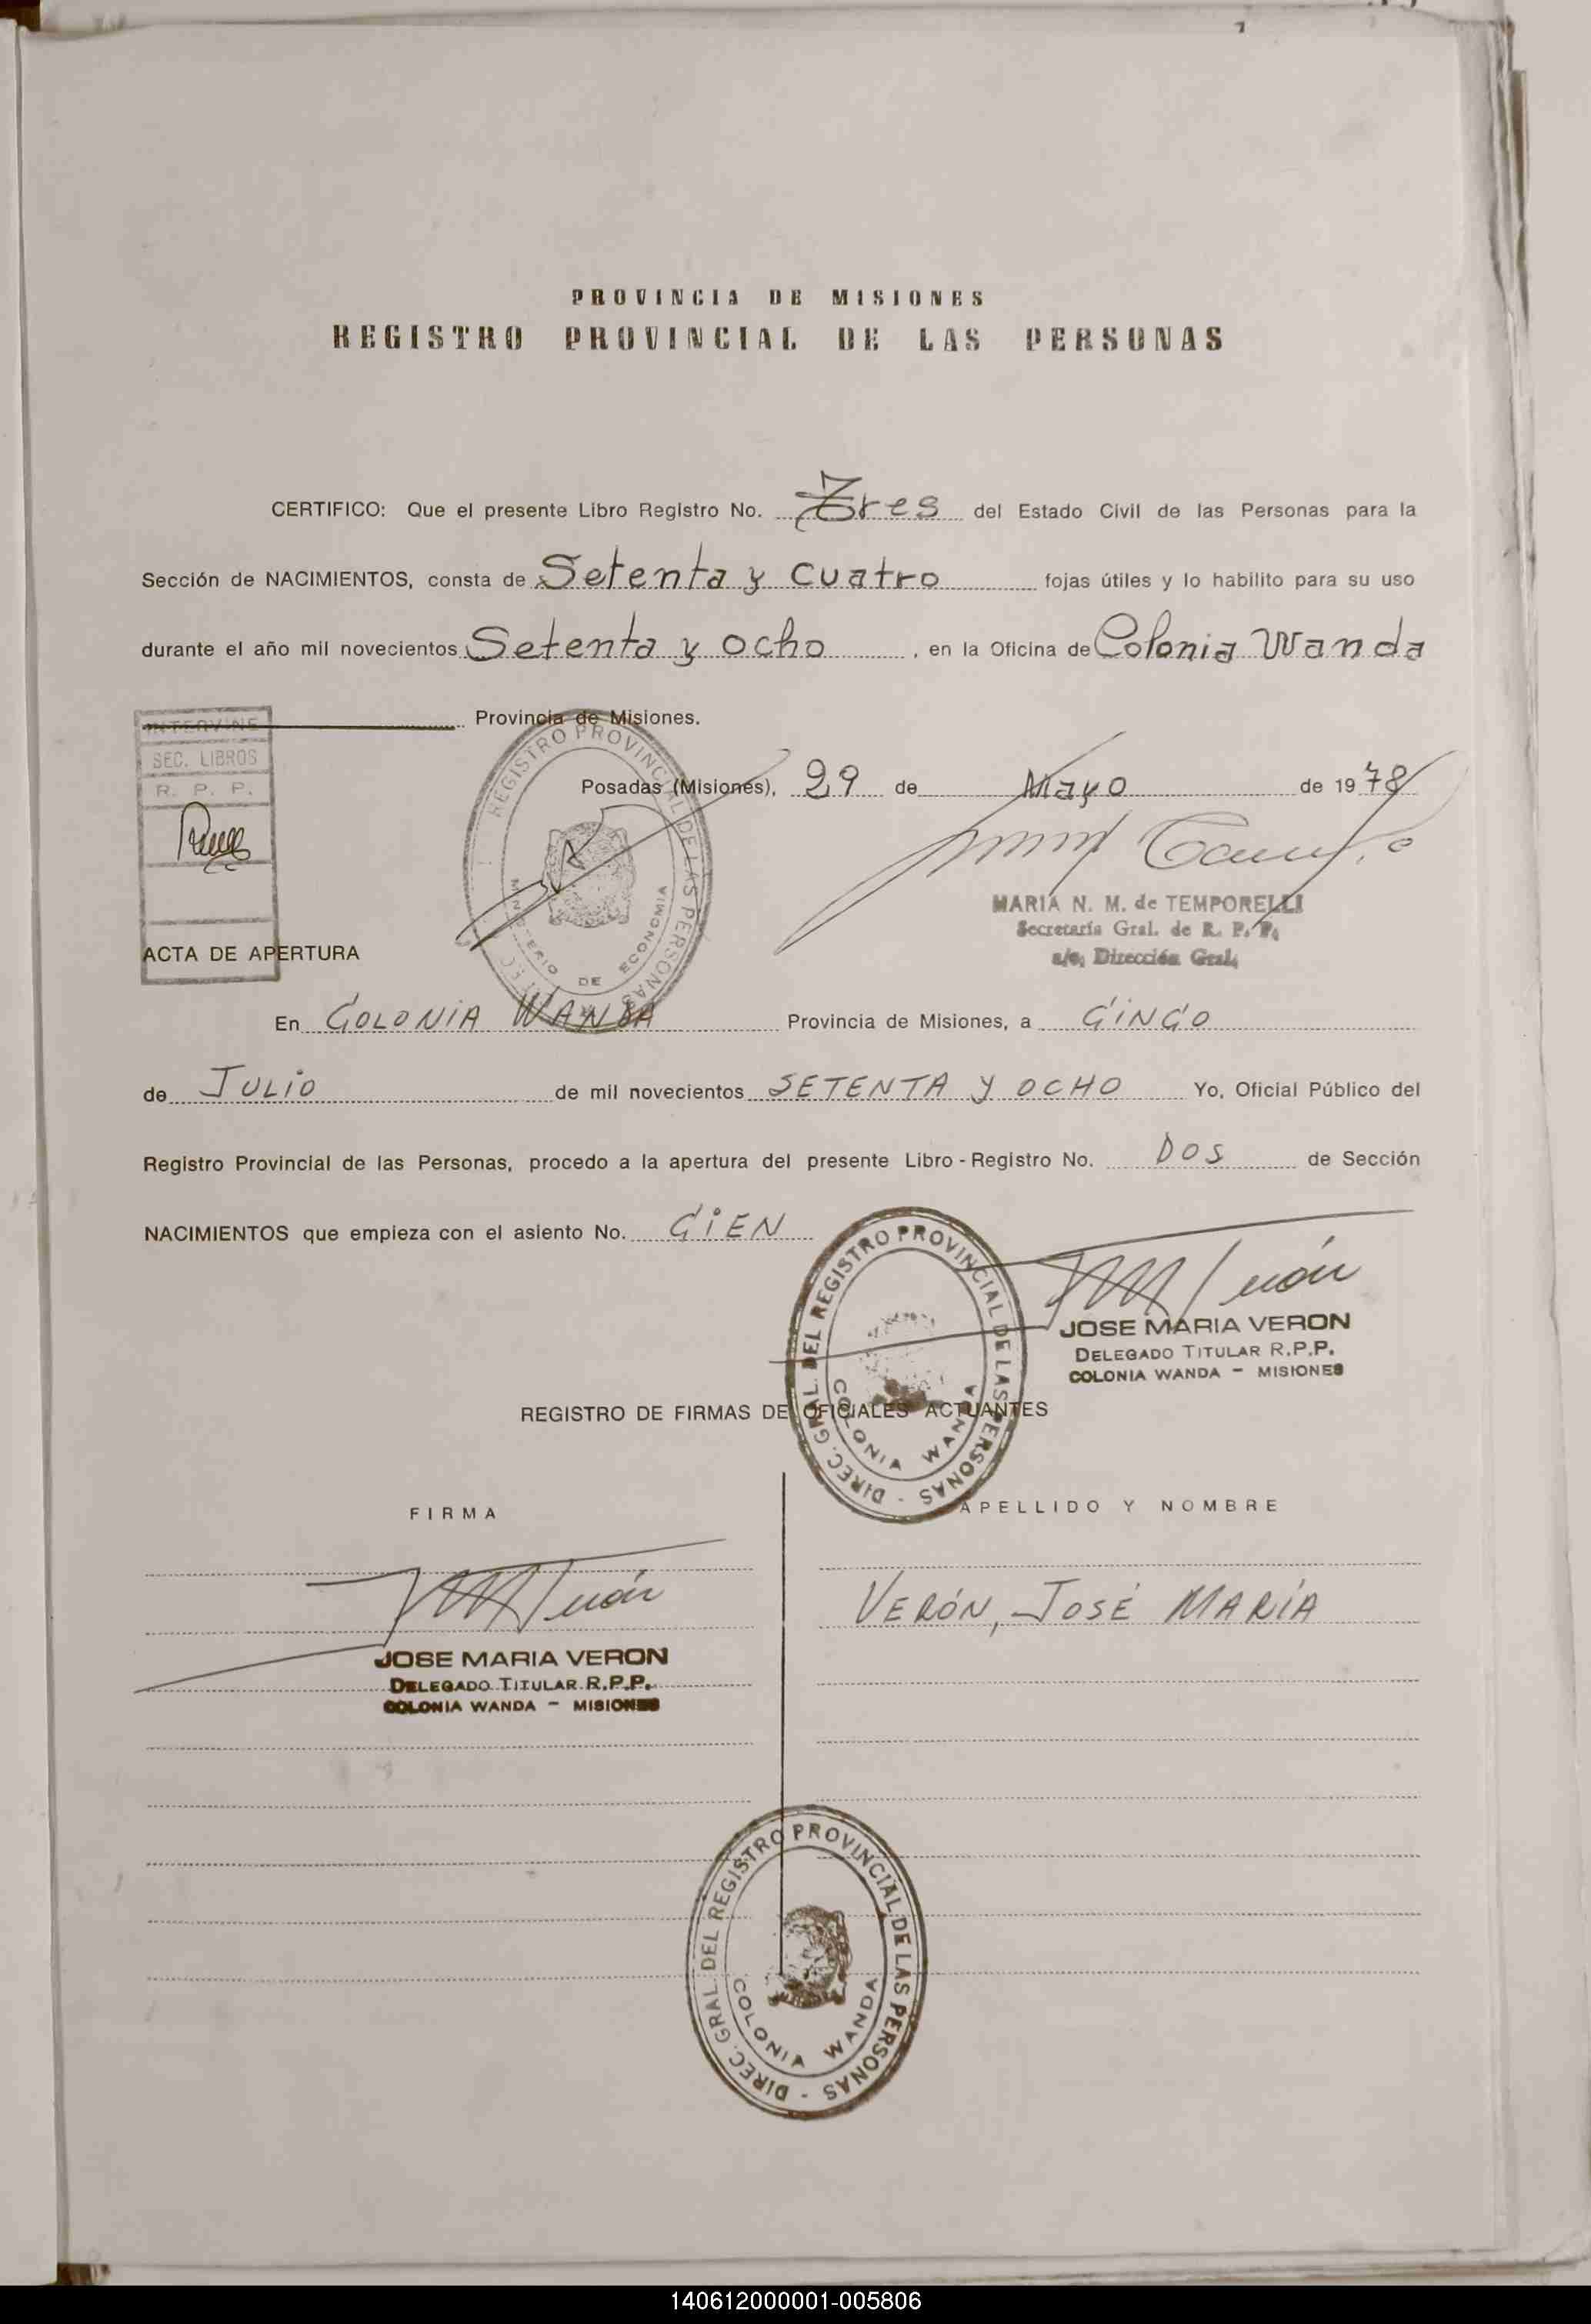 PROVINCIA DE MISIONES
REGISTRO PROVINCIAL DE LAS PERSONAS
CERTIFICO: Que el presente Libro Registro No. Tres del Estado Civil de las Personas para la
Sección de NACIMIENTOS, consta de Setenta y cuatro fojas útiles y lo habilito para su uso
durante el año mil novecientos Setenta y ocho, en la Oficina de Colonia Wanda
Provincia de Misiones.
INTERVINE
SEC. LIBROS
R. P. P.
REGISTRO PROVINCIAL DE LAS PERSONAS
MINISTERIO DE ECONOMIA
Posadas (Misiones), 29 de Mayo de 1978
MARIA N. M. de TEMPORELLI
Secretaría Gral. de R. P. P.
a/c. Dirección Gral.
ACTA DE APERTURA
En COLONIA WANDA Provincia de Misiones, a CINCO
de JULIO de mil novecientos SETENTA Y OCHO Yo, Oficial Público del
Registro Provincial de las Personas, procedo a la apertura del presente Libro - Registro No. DOS de Sección
NACIMIENTOS que empieza con el asiento No. CIEN
DIREC. GRAL. DEL REGISTRO PROVINCIAL DE LAS PERSONAS -
COLONIA WANDA
JOSE MARIA VERON
DELEGADO TITULAR R.P.P.
COLONIA WANDA - MISIONES
REGISTRO DE FIRMAS DE OFICIALES ACTUANTES
FIRMA
APELLIDO Y NOMBRE
VERÓN, JOSÉ MARÍA
JOSE MARIA VERON
DELEGADO TITULAR R.P.P.
COLONIA WANDA - MISIONES
DIREC. GRAL. DEL REGISTRO PROVINCIAL DE LAS PERSONAS -
COLONIA WANDA
140612000001-005806